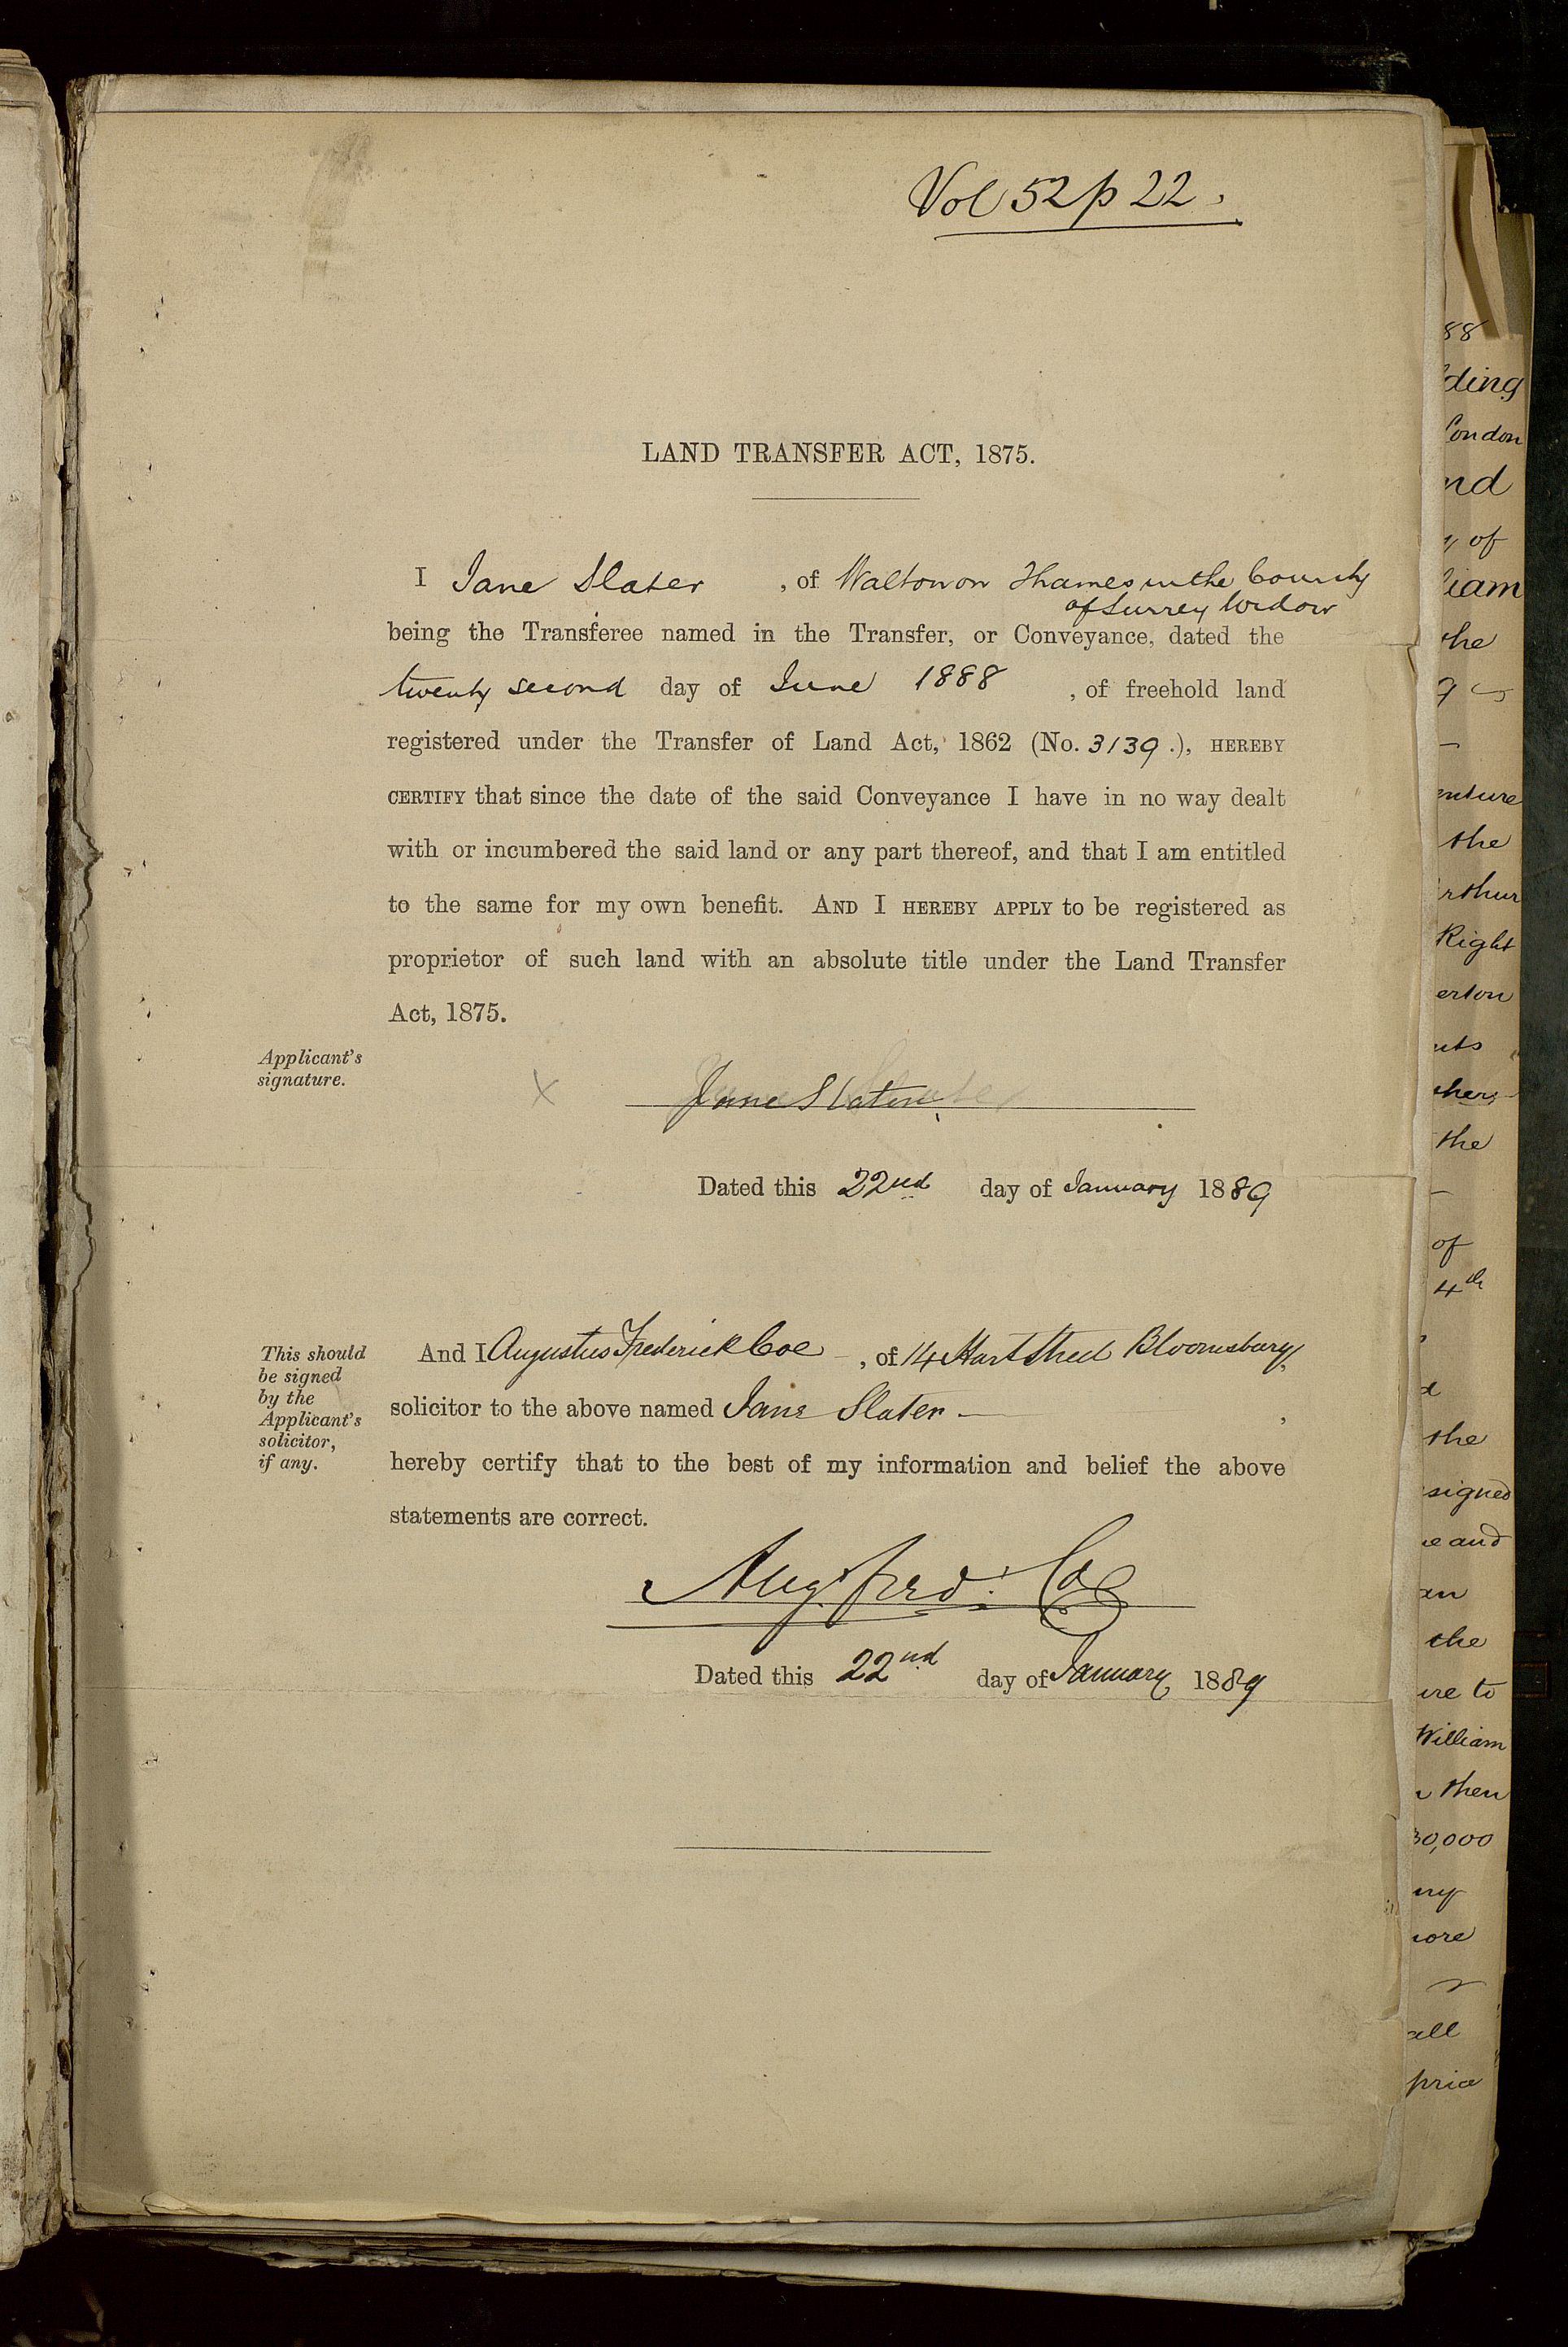 Vol 52 p 22.
LAND TRANSFER ACT, 1875.
I Jane Slater, of Walton on Thames in the County
of Surrey Widow
being the Transferee named in the Transfer, or Conveyance, dated the
twenty second day of June 1888, of freehold land
registered under the Transfer of Land Act, 1862 (No. 3139.), HEREBY
CERTIFY that since the date of the said Conveyance I have in no way dealt
with or incumbered the said land or any part thereof, and that I am entitled
to the same for my own benefit. AND I HEREBY APPLY to be registered as
proprietor of such land with an absolute title under the Land Transfer
Act, 1875.
Applicant's
signature.
x Jane Slater
Dated this 22nd day of January 1889
This should
be signed
by the
Applicant's
solicitor,
if any.
And I Augustus Frederick Coe, of 14 Hart Street Bloomsbury,
solicitor to the above named Jane Slater,
hereby certify that to the best of my information and belief the above
statements are correct.
Augs. Fred: Coe
Dated this 22nd day of January 1889
88
ding
London
nd
of
liam
the
enture
the
rthur
Right
erton
nts
thers
the
of
4th
the
signed
e and
an
the
ure to
William
then
30,000
ny
more
all
price